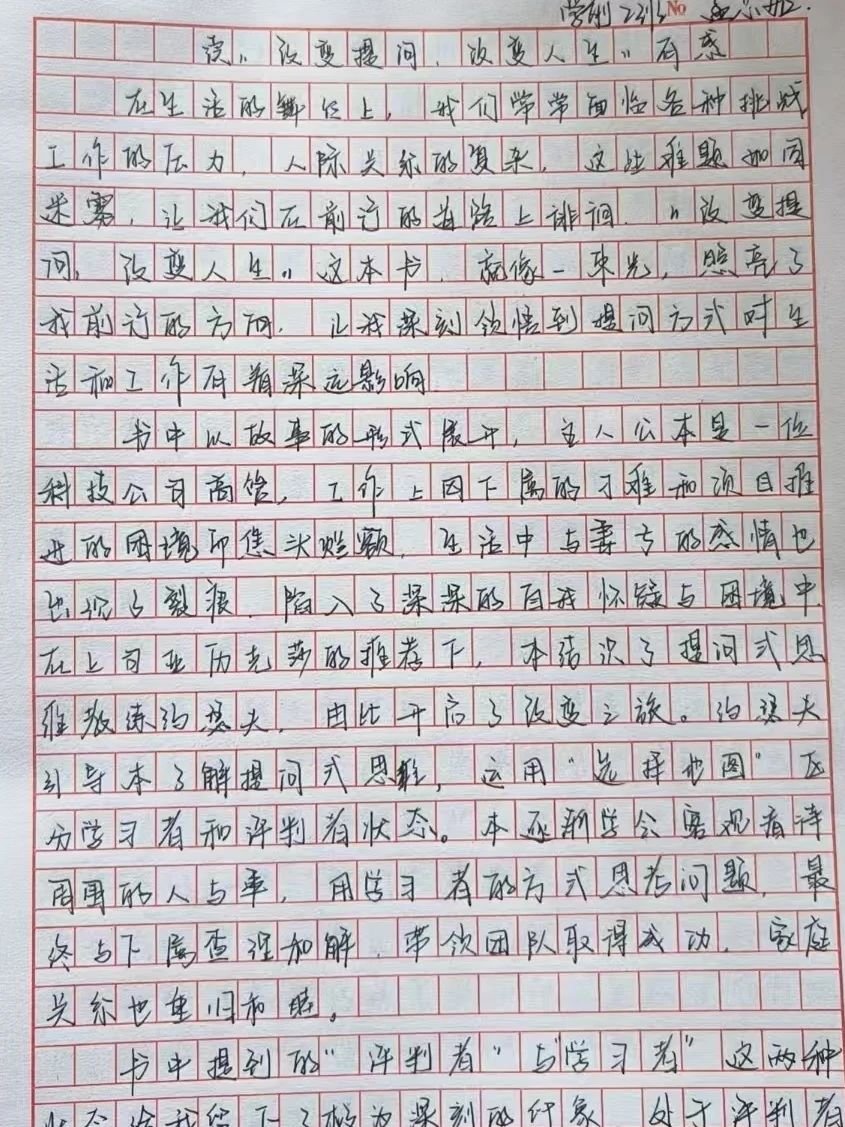 No
读《改变提问,改变人生》有感
在生活的舞台上,我们常常面临各种挑战
工作的压力,人际关系的复杂,这些难题如同
迷雾,让我们在前行的道路上徘徊.《改变提
问,改变人生》这本书,就像一束光,照亮了
我前行的方向.让我深刻领悟到提问方式对生
活和工作有着深远影响
书中以故事的形式展开,主人公本是一位
科技公司高管,工作上因下属的刁难和项目推
进的困境而焦头烂额,生活中与妻子的感情也
出现了裂痕.陷入了深深的自我怀疑与困境中.
在上司亚历克莎的推荐下,本结识了提问式思
维教练约瑟夫,由此开启了改变之旅。约瑟夫
引导本了解提问式思维,运用“选择地图”区
分学习者和评判者状态。本逐渐学会客观看待
周围的人与事,用学习者的方式思考问题,最
终与下属查理和解.带领团队取得成功.家庭
关系也重归和睦。
书中提到的“评判者”与“学习者”这两种
状态给我留下了极为深刻的印象 处于评判者